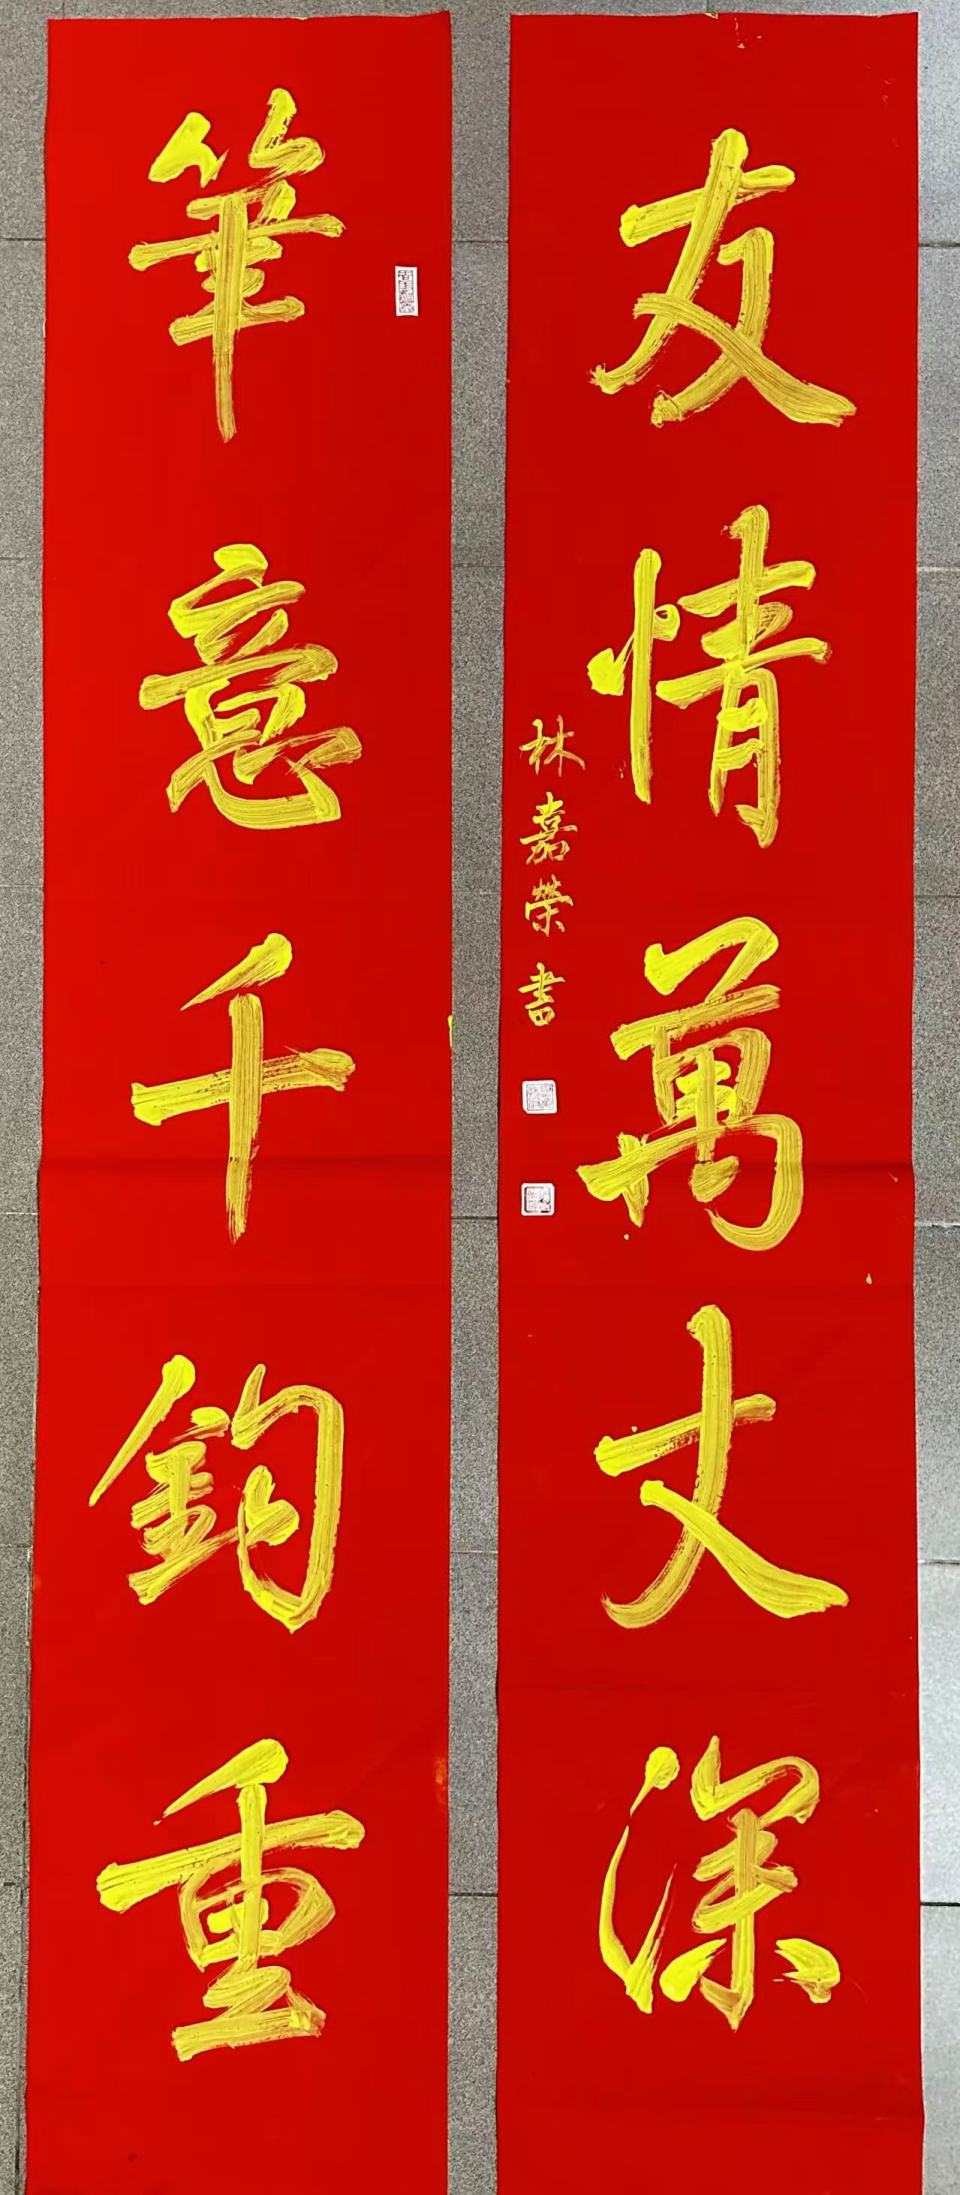 筆意千鈞重
友情萬丈深
林嘉榮書